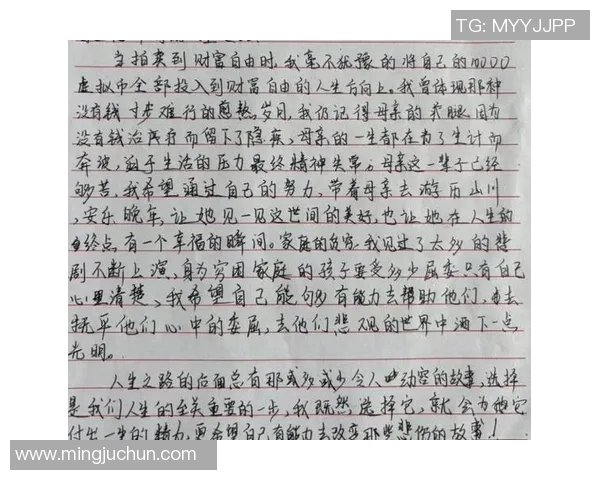 TG: MYYJJPP
当拍卖到财富自由时,我毫不犹豫的将自己的10000
虚拟币全部投入到财富自由的人生方向上。我曾体现那种
没有钱寸步难行的煎熬岁月,我仍记得母亲的 腿因为
没有钱治疗而留下了隐疾,母亲的一生都在为了生计而
奔波,迫于生活的压力最终精神失常。母亲这一辈子已经
够苦,我希望通过自己的努力,带着母亲去游历山川
,安乐晚年,让她见一见这世间的美好,也让她在人生的
终点有一个幸福的瞬间。家庭的贫穷,我见过了太多的悲
剧不断上演,身为穷困家庭的孩子要受多少屈委只有自己
心里清楚,我希望自己能够有能力去帮助他们,去
抚平他们心中的委屈,去他们悲观的世界中洒下一点
光明。
人生之路的后面总有那或多或少令人动容的故事,选择
是我们人生的至关重要的一步,我既然选择它,就会为他它
付出一生的精力,更希望自己有能力去改变那些悲伤的故事!
www.mingjuchun.com